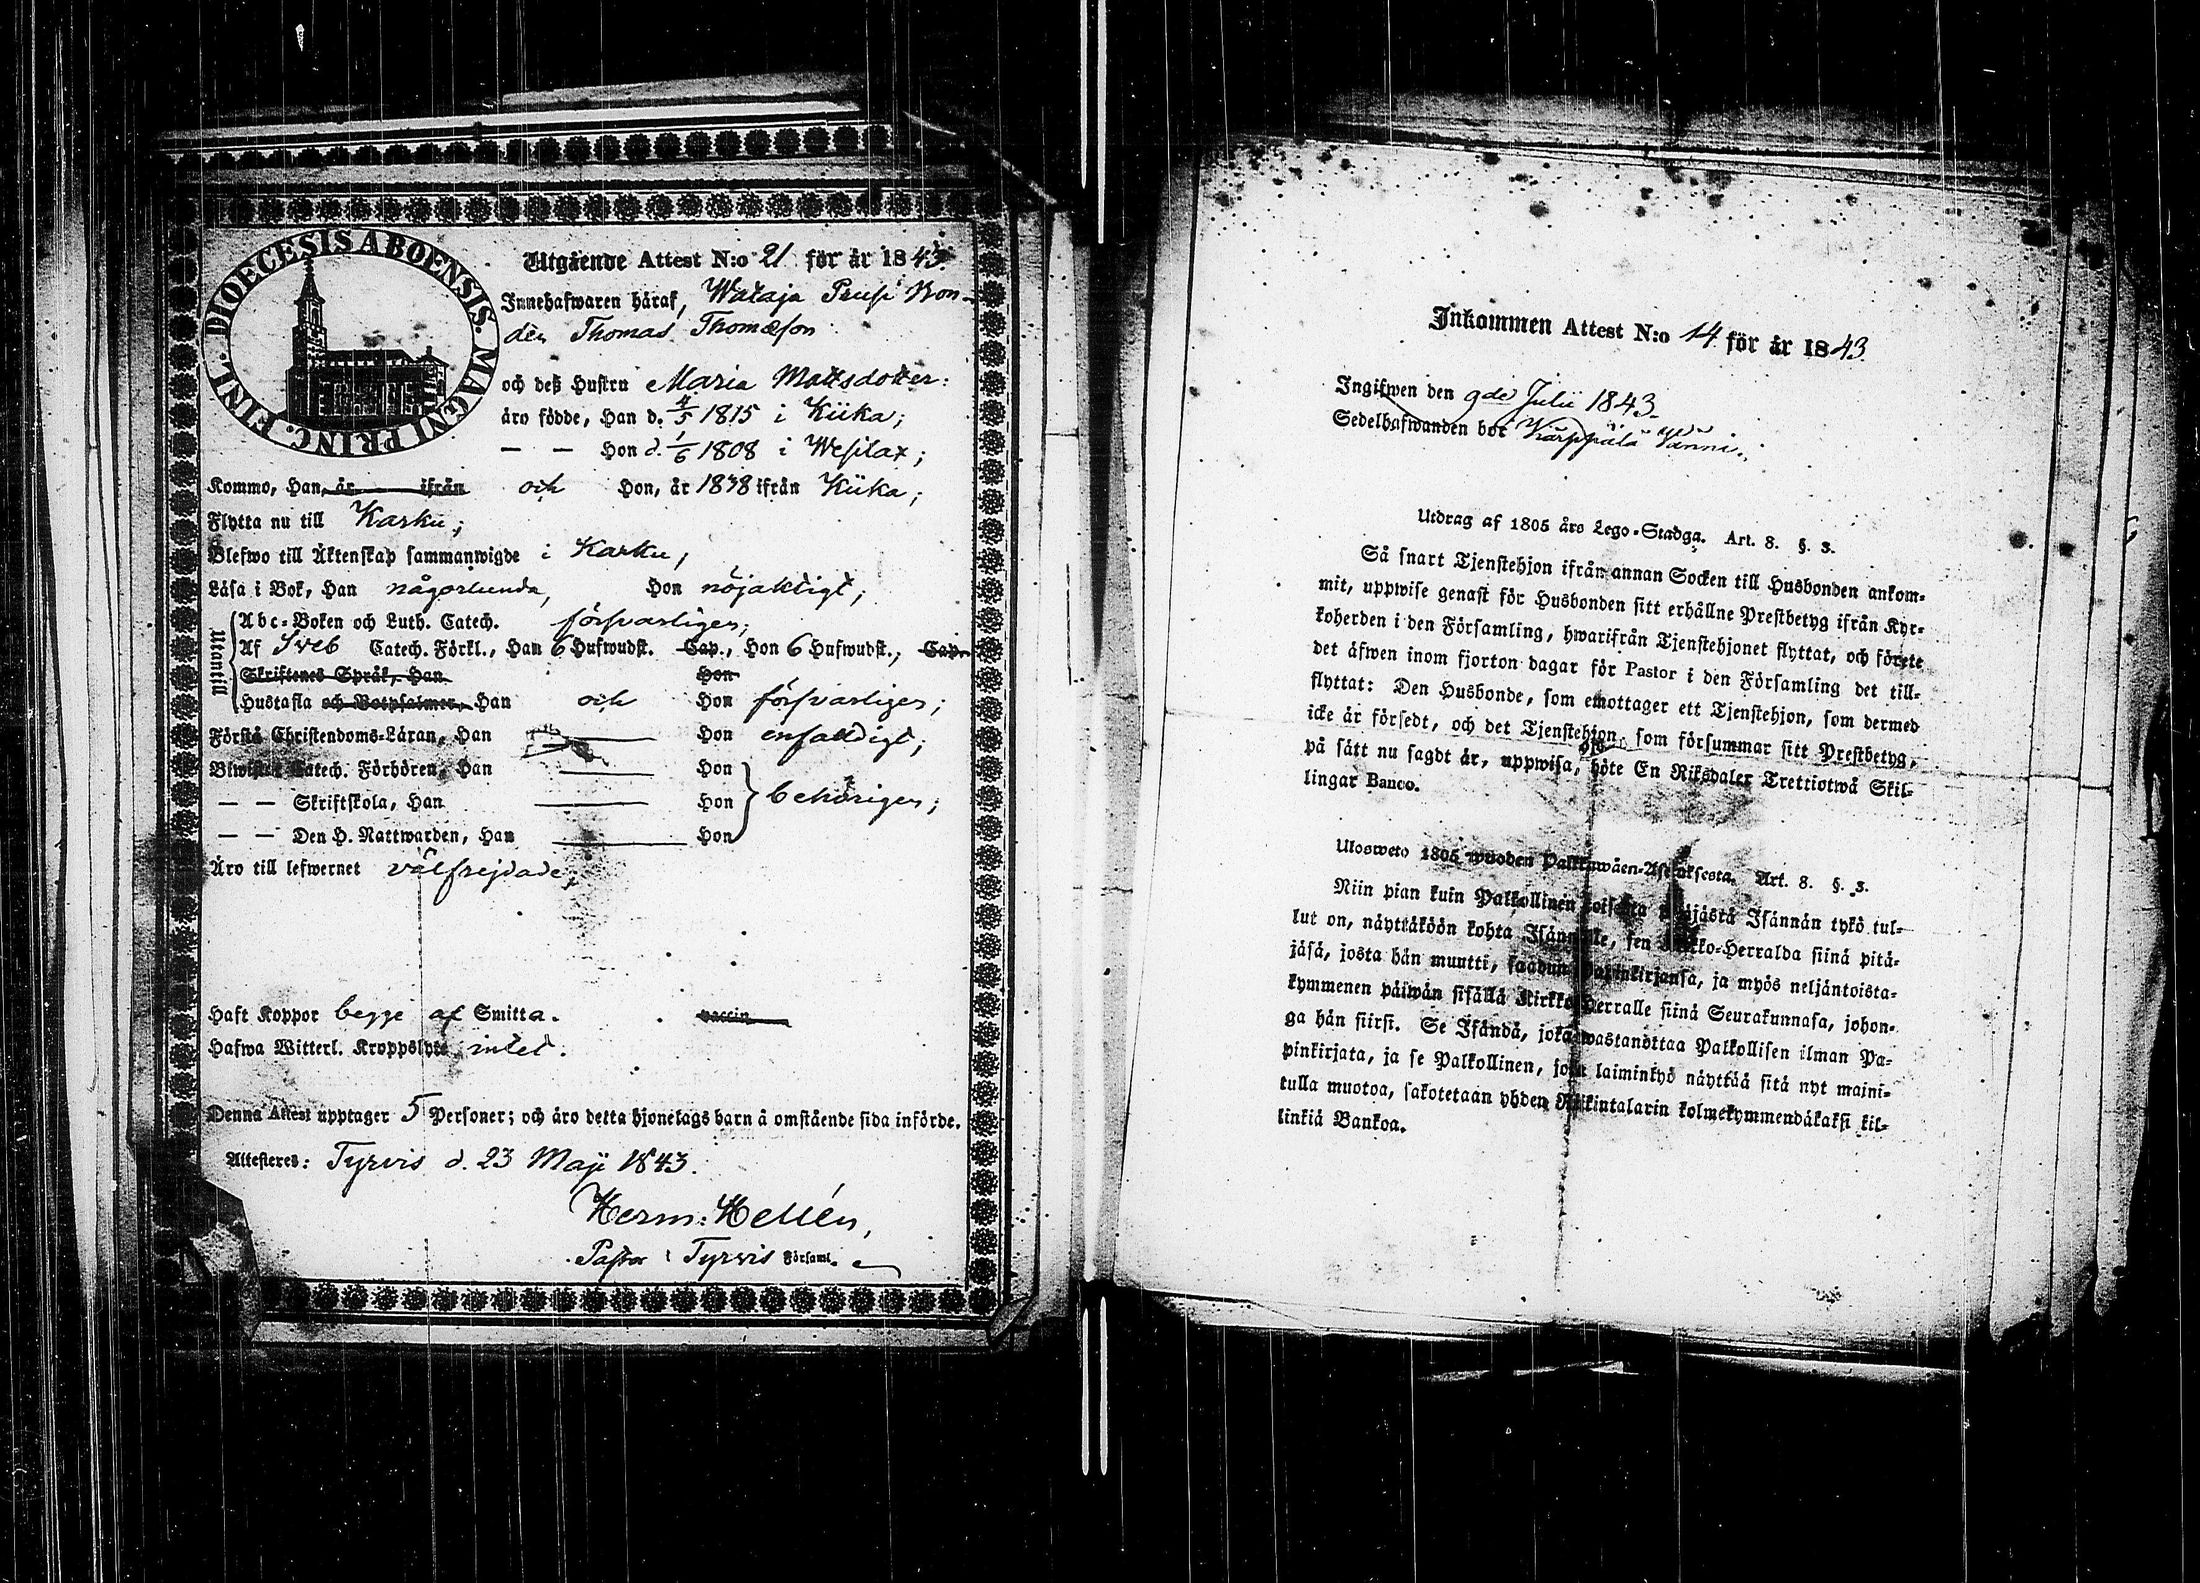 DIOECESIS ABOENSIS. MAGNI PRINC. FINL.
Utgående Attest N:o 21 för år 1843.
Innehafwaren häraf, Wataja Bon-
den Thomas Thomæson
och deß Hustru Maria Mattsdotter:
äro födde, Han d. 4/5 1815 i Kiika;
— — Hon d. 1/6 1808 i Wesilax;
Kommo, Han, år ifrån och Hon, år 1838 ifrån Kiika;
Flytta nu till Karku;
Blefwo till Äktenskap sammanwigde i Karku;
Läsa i Bok, Han någorlunda, Hon nöjaktigt;
Utantill
Abc-Boken och Luth. Catech. försvarligen;
Af Sveb Catech. Förkl., Han 6 Hufwudst. Cap., Hon 6 Hufwudst., Cap.
Skriftenes Språk, Han Hon
Hustafla och Botpsalmer, Han och Hon försvarligen;
Förstå Christendoms-Läran, Han Hon enfaldigt;
Biwistat Catech. Förhören, Han Hon
— — Skriftskola, Han Hon behörigen;
— — Den H. Nattwarden, Han Hon
Äro till lefwernet välfrejdade;
Haft Koppor begge af Smitta. vaccin
Hafwa Witterl. Kroppslyte intet.
Denna Attest upptager 5 Personer; och äro detta hjonelags barn å omstående sida införde.
Attesteres: Tyrvis d. 23 Maji 1843.
Herm: Hellén,
Pastor i Tyrvis Församl.
Inkommen Attest N:o 14 för år 1843
Ingifwen den 9de Julii 1843.
Sedelhafwanden bor Kärppälä Vänni.
Utdrag af 1805 års Lego-Stadga. Art. 8. §. 3.
Så snart Tjenstehjon ifrån annan Socken till Husbonden ankom-
mit, uppwise genast för Husbonden sitt erhållne Prestbetyg ifrån Kyr-
koherden i den Församling, hwarifrån Tjenstehjonet flyttat, och förete
det äfwen inom fjorton dagar för Pastor i den Församling det till-
flyttat: Den Husbonde, som emottager ett Tjenstehjon, som dermed
icke är försedt, och det Tjenstehjon, som försummar sitt Prestbetyg,
på sätt nu sagdt är, uppwisa, böte En Riksdaler Trettiotwå Skil-
lingar Banco.
Ulosweto 1805 wuoden Palkkuwäen-Asetuksesta. Art. 8. §. 3.
Niin pian kuin Palkollinen toisesta pitäjästä Isännän tykö tul-
lut on, näyttäköön kohta Isännälle, sen Kirkko-Herralda siinä pitä-
jäsä, josta hän muutti, saadun Papinkirjansa, ja myös neljäntoista-
kymmenen päiwän sisällä Kirkko-Herralle siinä Seurakunnasa, johon-
ga hän siirsi. Se Isändä, joka wastanottaa Palkollisen ilman Pa-
pinkirjata, ja se Palkollinen, joka laiminlyö näyttää sitä nyt maini-
tulla muotoa, sakotetaan yhden Riikintalarin kolmekymmendäkaksi kil-
linkiä Bankoa.